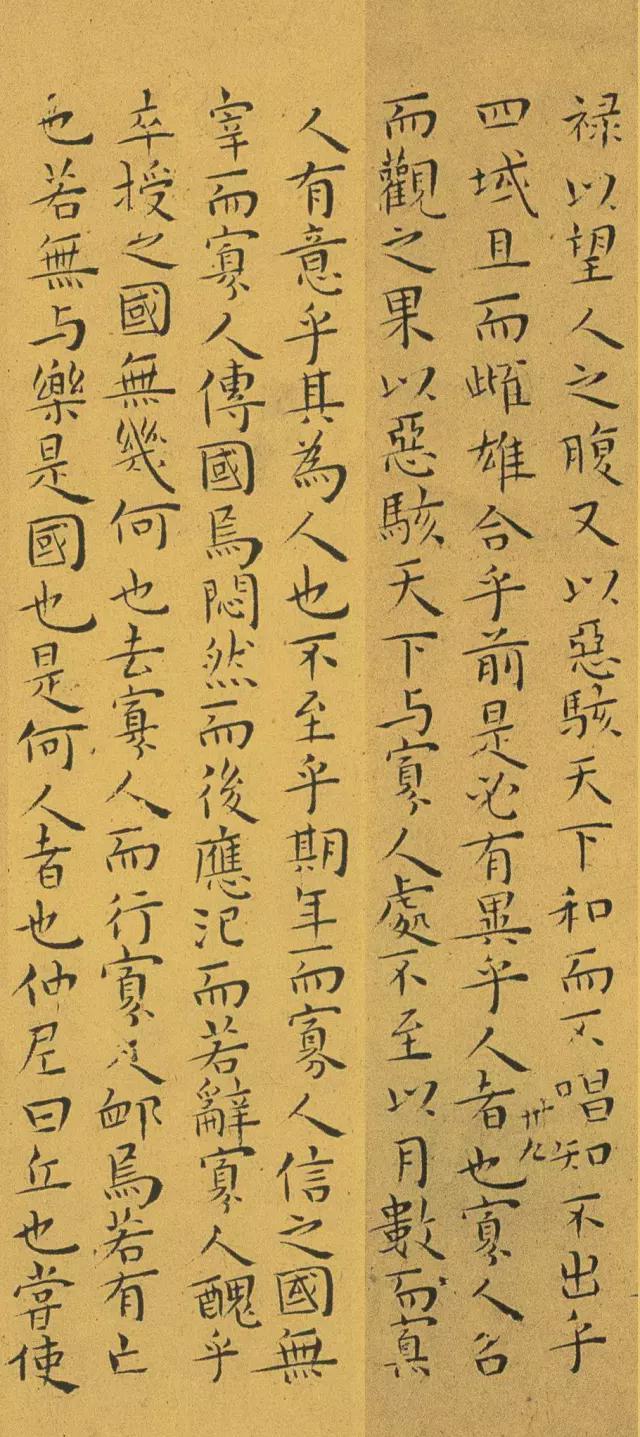 禄以望人之腹又以惡駭天下和而不唱知不出乎
卅九
四域且而雌雄合乎前是必有異乎人者也寡人召
而觀之果以惡駭天下与寡人處不至以月數而寡
人有意乎其為人也不至乎期年而寡人信之國無
宰而寡人傳國焉悶然而後應氾而若辭寡人醜乎
卒授之國無幾何也去寡人而行寡人卹焉若有亡
也若無与樂是國也是何人者也仲尼曰丘也嘗使